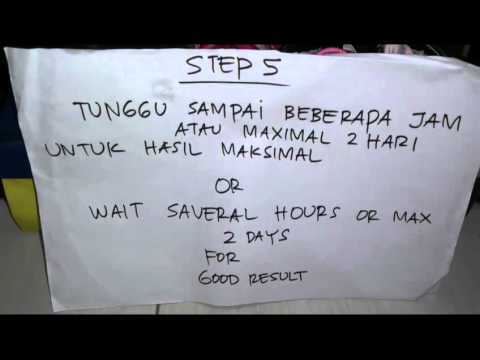 STEP 5
TUNGGU SAMPAI BEBERAPA JAM
ATAU MAXIMAL 2 HARI
UNTUK HASIL MAKSIMAL
OR
WAIT SAVERAL HOURS OR MAX
2 DAYS
FOR
GOOD RESULT